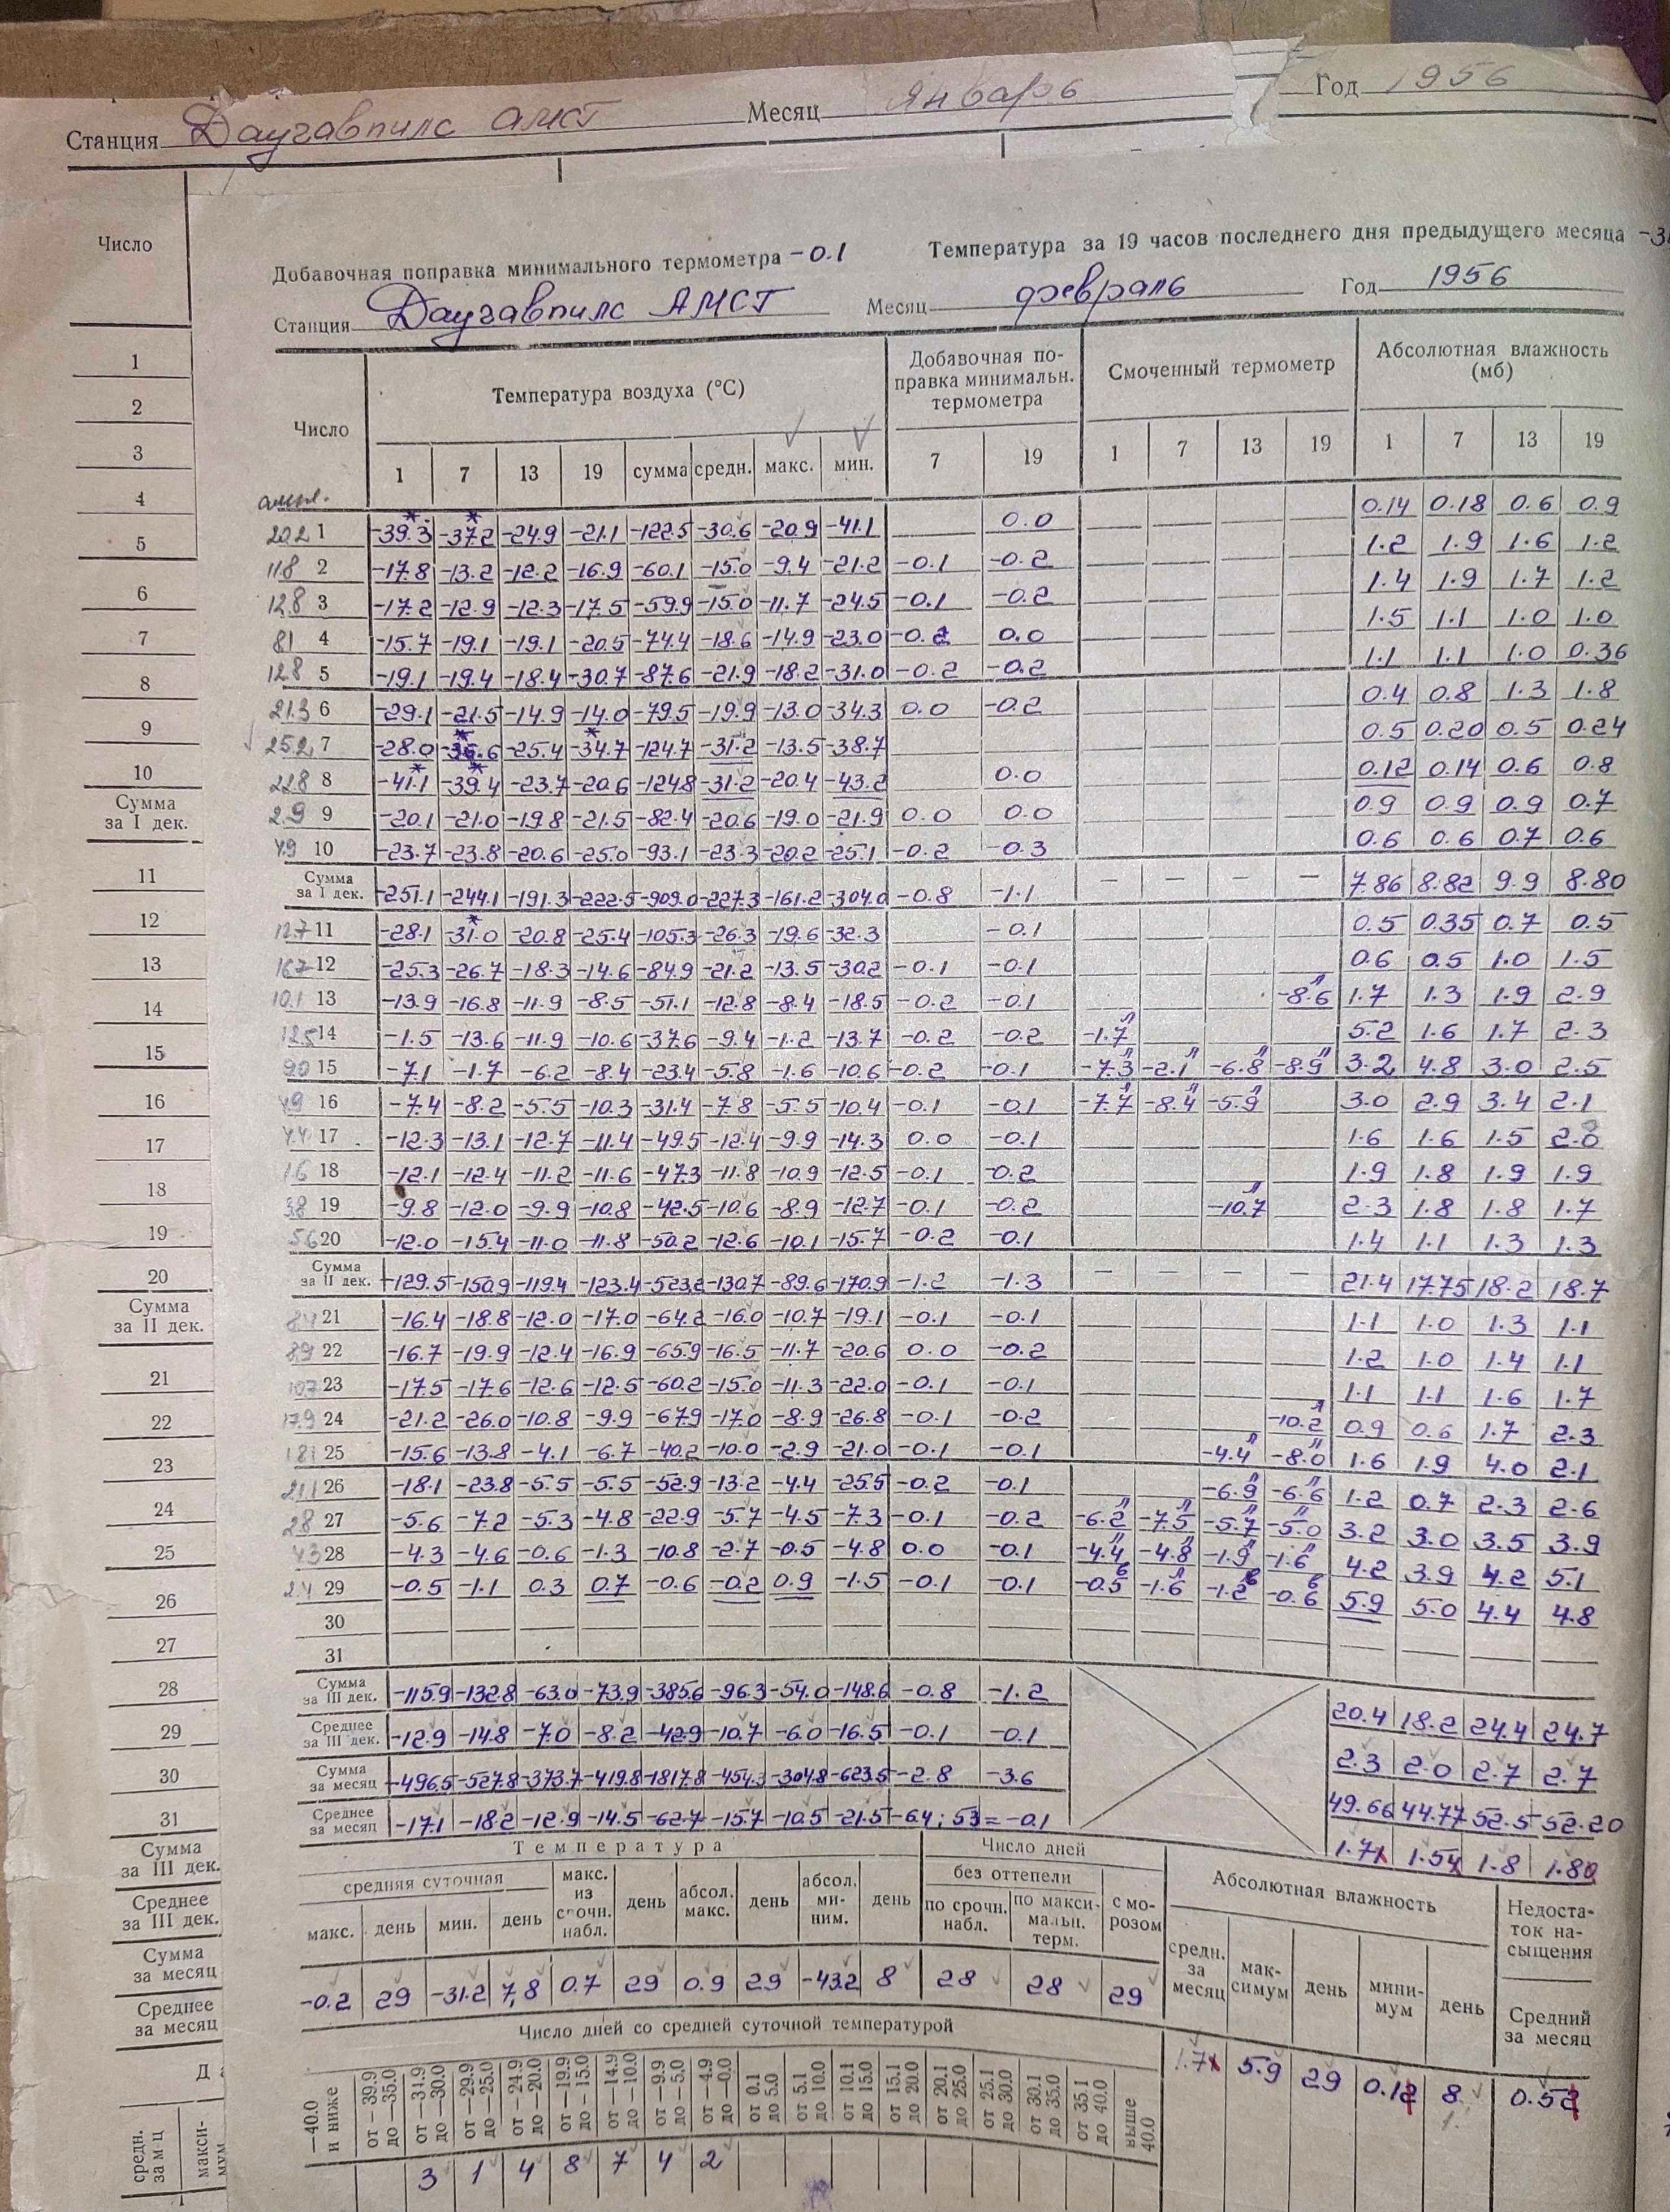 Станция Даугавпилс АМСТ Месяц Январь Год 1956
Число
Добавочная поправка минимального термометра -0.1 Температура за 19 часов последнего дня предыдущего месяца
Станция Даугавпилс АМСТ Месяц февраль Год 1956
Число Температура воздуха (°C) Добавочная поправка минимальн. термометра Смоченный термометр Абсолютная влажность (мб)
1 7 13 19 сумма средн. макс. мин. 7 19 1 7 13 19 1 7 13 19
ампл.
20.2 1 -39.3 -37.2 -24.9 -21.1 -122.5 -30.6 -20.9 -41.1 0.0 0.14 0.18 0.6 0.9
11.8 2 -17.8 -13.2 -12.2 -16.9 -60.1 -15.0 -9.4 -21.2 -0.1 -0.2 1.2 1.9 1.6 1.2
12.8 3 -17.2 -12.9 -12.3 -17.5 -59.9 -15.0 -11.7 -24.5 -0.1 -0.2 1.4 1.9 1.7 1.2
8.1 4 -15.7 -19.1 -19.1 -20.5 -74.4 -18.6 -14.9 -23.0 0.0 1.5 1.1 1.0 1.0
12.8 5 -19.1 -19.4 -18.4 -30.7 -87.6 -21.9 -18.2 -31.0 -0.2 -0.2 1.1 1.1 1.0 0.36
21.3 6 -29.1 -21.5 -14.9 -14.0 -79.5 -19.9 -13.0 -34.3 0.0 -0.2 0.4 0.8 1.3 1.8
25.2 7 -28.0 -36.6 -25.4 -34.7 -124.7 -31.2 -13.5 -38.7 0.5 0.20 0.5 0.24
22.8 8 -41.1 -39.4 -23.7 -20.6 -124.8 -31.2 -20.4 -43.2 0.0 0.12 0.14 0.6 0.8
2.9 9 -20.1 -21.0 -19.8 -21.5 -82.4 -20.6 -19.0 -21.9 0.0 0.0 0.9 0.9 0.9 0.7
4.9 10 -23.7 -23.8 -20.6 -25.0 -93.1 -23.3 -20.2 -25.1 -0.2 -0.3 0.6 0.6 0.7 0.6
Сумма за I дек. -251.1 -244.1 -191.3 -222.5 -909.0 -227.3 -161.2 -304.0 -0.8 -1.1 — — — — 7.86 8.82 9.9 8.80
12.7 11 -28.1 -31.0 -20.8 -25.4 -105.3 -26.3 -19.6 -32.3 -0.1 0.5 0.35 0.7 0.5
16.7 12 -25.3 -26.7 -18.3 -14.6 -84.9 -21.2 -13.5 -30.2 -0.1 -0.1 0.6 0.5 1.0 1.5
10.1 13 -13.9 -16.8 -11.9 -8.5 -51.1 -12.8 -8.4 -18.5 -0.2 -0.1 -8.6 1.7 1.3 1.9 2.9
12.5 14 -1.5 -13.6 -11.9 -10.6 -37.6 -9.4 -1.2 -13.7 -0.2 -0.2 -1.7 5.2 1.6 1.7 2.3
9.0 15 -7.1 -1.7 -6.2 -8.4 -23.4 -5.8 -1.6 -10.6 -0.2 -0.1 -7.3 -2.1 -6.8 -8.9 3.2 4.8 3.0 2.5
4.9 16 -7.4 -8.2 -5.5 -10.3 -31.4 -7.8 -5.5 -10.4 -0.1 -0.1 -7.7 -8.4 -5.9 3.0 2.9 3.4 2.1
4.4 17 -12.3 -13.1 -12.7 -11.4 -49.5 -12.4 -9.9 -14.3 0.0 -0.1 1.6 1.6 1.5 2.0
1.6 18 -12.1 -12.4 -11.2 -11.6 -47.3 -11.8 -10.9 -12.5 -0.1 -0.2 1.9 1.8 1.9 1.9
3.8 19 -9.8 -12.0 -9.9 -10.8 -42.5 -10.6 -8.9 -12.7 -0.1 -0.2 -10.7 2.3 1.8 1.8 1.7
5.6 20 -12.0 -15.4 -11.0 -11.8 -50.2 -12.6 -10.1 -15.7 -0.2 -0.1 1.4 1.1 1.3 1.3
Сумма за II дек. -129.5 -150.9 -119.4 -123.4 -523.2 -130.7 -89.6 -170.9 -1.2 -1.3 — — — — 21.4 17.75 18.2 18.7
8.4 21 -16.4 -18.8 -12.0 -17.0 -64.2 -16.0 -10.7 -19.1 -0.1 -0.1 1.1 1.0 1.3 1.1
8.9 22 -16.7 -19.9 -12.4 -16.9 -65.9 -16.5 -11.7 -20.6 0.0 -0.2 1.2 1.0 1.4 1.1
10.7 23 -17.5 -17.6 -12.6 -12.5 -60.2 -15.0 -11.3 -22.0 -0.1 -0.1 1.1 1.1 1.6 1.7
17.9 24 -21.2 -26.0 -10.8 -9.9 -67.9 -17.0 -8.9 -26.8 -0.1 -0.2 -10.2 0.9 0.6 1.7 2.3
18.1 25 -15.6 -13.8 -4.1 -6.7 -40.2 -10.0 -2.9 -21.0 -0.1 -0.1 -4.4 -8.0 1.6 1.9 4.0 2.1
21.1 26 -18.1 -23.8 -5.5 -5.5 -52.9 -13.2 -4.4 -25.5 -0.2 -0.1 -6.9 -6.6 1.2 0.7 2.3 2.6
2.8 27 -5.6 -7.2 -5.3 -4.8 -22.9 -5.7 -4.5 -7.3 -0.1 -0.2 -6.2 -7.5 -5.7 -5.0 3.2 3.0 3.5 3.9
4.3 28 -4.3 -4.6 -0.6 -1.3 -10.8 -2.7 -0.5 -4.8 0.0 -0.1 -4.4 -4.8 -1.9 -1.6 4.2 3.9 4.2 5.1
2.4 29 -0.5 -1.1 0.3 0.7 -0.6 -0.2 0.9 -1.5 -0.1 -0.1 -0.5 -1.6 -1.2 -0.6 5.9 5.0 4.4 4.8
30
31
Сумма за III дек. -115.9 -132.8 -63.0 -73.9 -385.6 -96.3 -54.0 -148.6 -0.8 -1.2 20.4 18.2 24.4 24.7
Среднее за III дек. -12.9 -14.8 -7.0 -8.2 -42.9 -10.7 -6.0 -16.5 -0.1 -0.1 2.3 2.0 2.7 2.7
Сумма за месяц -496.5 -527.8 -373.7 -419.8 -1817.8 -454.3 -304.8 -623.5 -2.8 -3.6 49.66 44.77 52.5 52.20
Среднее за месяц -17.1 -18.2 -12.9 -14.5 -62.7 -15.7 -10.5 -21.5 -6.4 : 53 = -0.1 1.71 1.54 1.8 1.80
Температура Число дней Абсолютная влажность Недостаток насыщения
средняя суточная макс. из срочн. набл. день абсол. макс. день абсол. миним. день без оттепели с морозом
макс. день мин. день по срочн. набл. по максимальн. терм. средн. за месяц максимум день минимум день Средний за месяц
-0.2 29 -31.2 7,8 0.7 29 0.9 29 -43.2 8 28 28 29
Число дней со средней суточной температурой
1.71 5.9 29 0.12 8 0.52
—40.0 и ниже от —39.9 до —35.0 от —31.9 до —30.0 от —29.9 до —25.0 от —24.9 до —20.0 от —19.9 до —15.0 от —14.9 до —10.0 от —9.9 до —5.0 от —4.9 до —0.0 от 0.1 до 5.0 от 5.1 до 10.0 от 10.1 до 15.0 от 15.1 до 20.0 от 20.1 до 25.0 от 25.1 до 30.0 от 30.1 до 35.0 от 35.1 до 40.0 выше 40.0
3 1 4 8 7 4 2
1
2
3
4
5
6
7
8
9
10
Сумма за I дек.
11
12
13
14
15
16
17
18
19
20
Сумма за II дек.
21
22
23
24
25
26
27
28
29
30
31
Сумма за III дек.
Среднее за III дек.
Сумма за месяц
Среднее за месяц
средн.